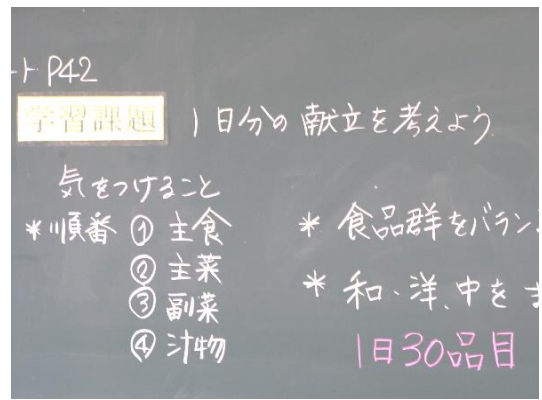 ートP42
学習課題 1日分の献立を考えよう
気をつけること
*順番 ①主食
②主菜
③副菜
④汁物
* 食品群をバラン
* 和、洋、中を
1日30品目